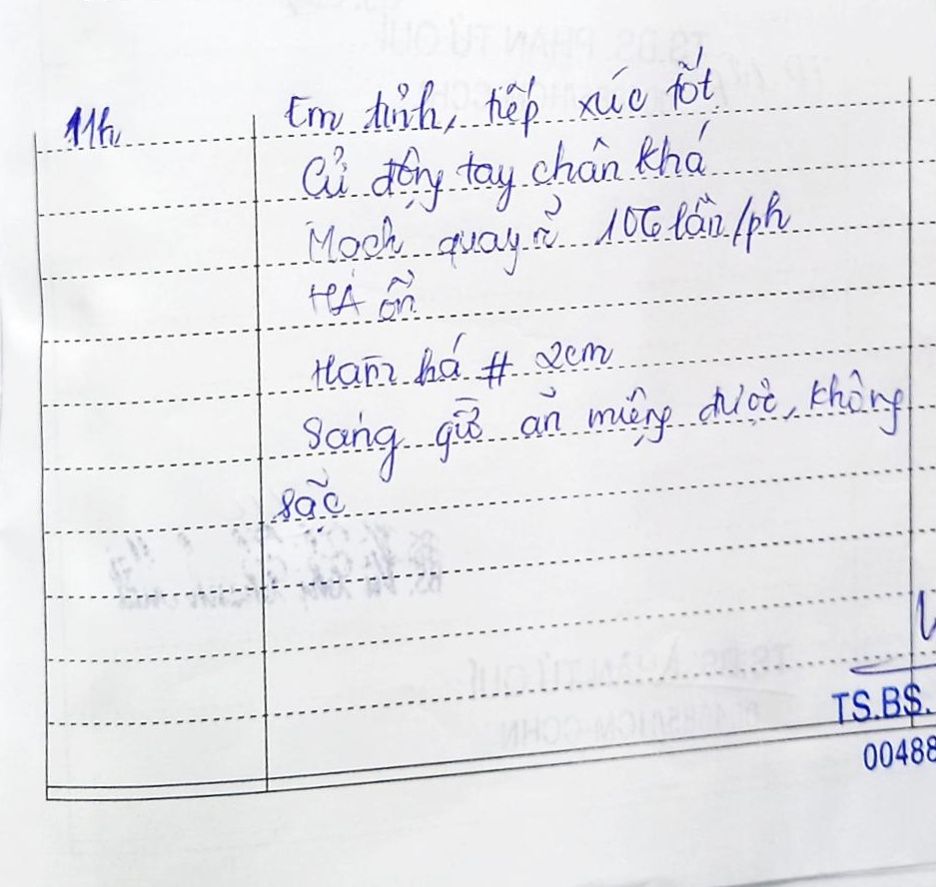 11h Em tỉnh, tiếp xúc tốt
Cử động tay chân khá
Mạch quay rõ 106 lần/ph
HA ổn
Hạn há # 2cm
Sáng giờ ăn miệng được, không
sặc
TS.BS.
00488